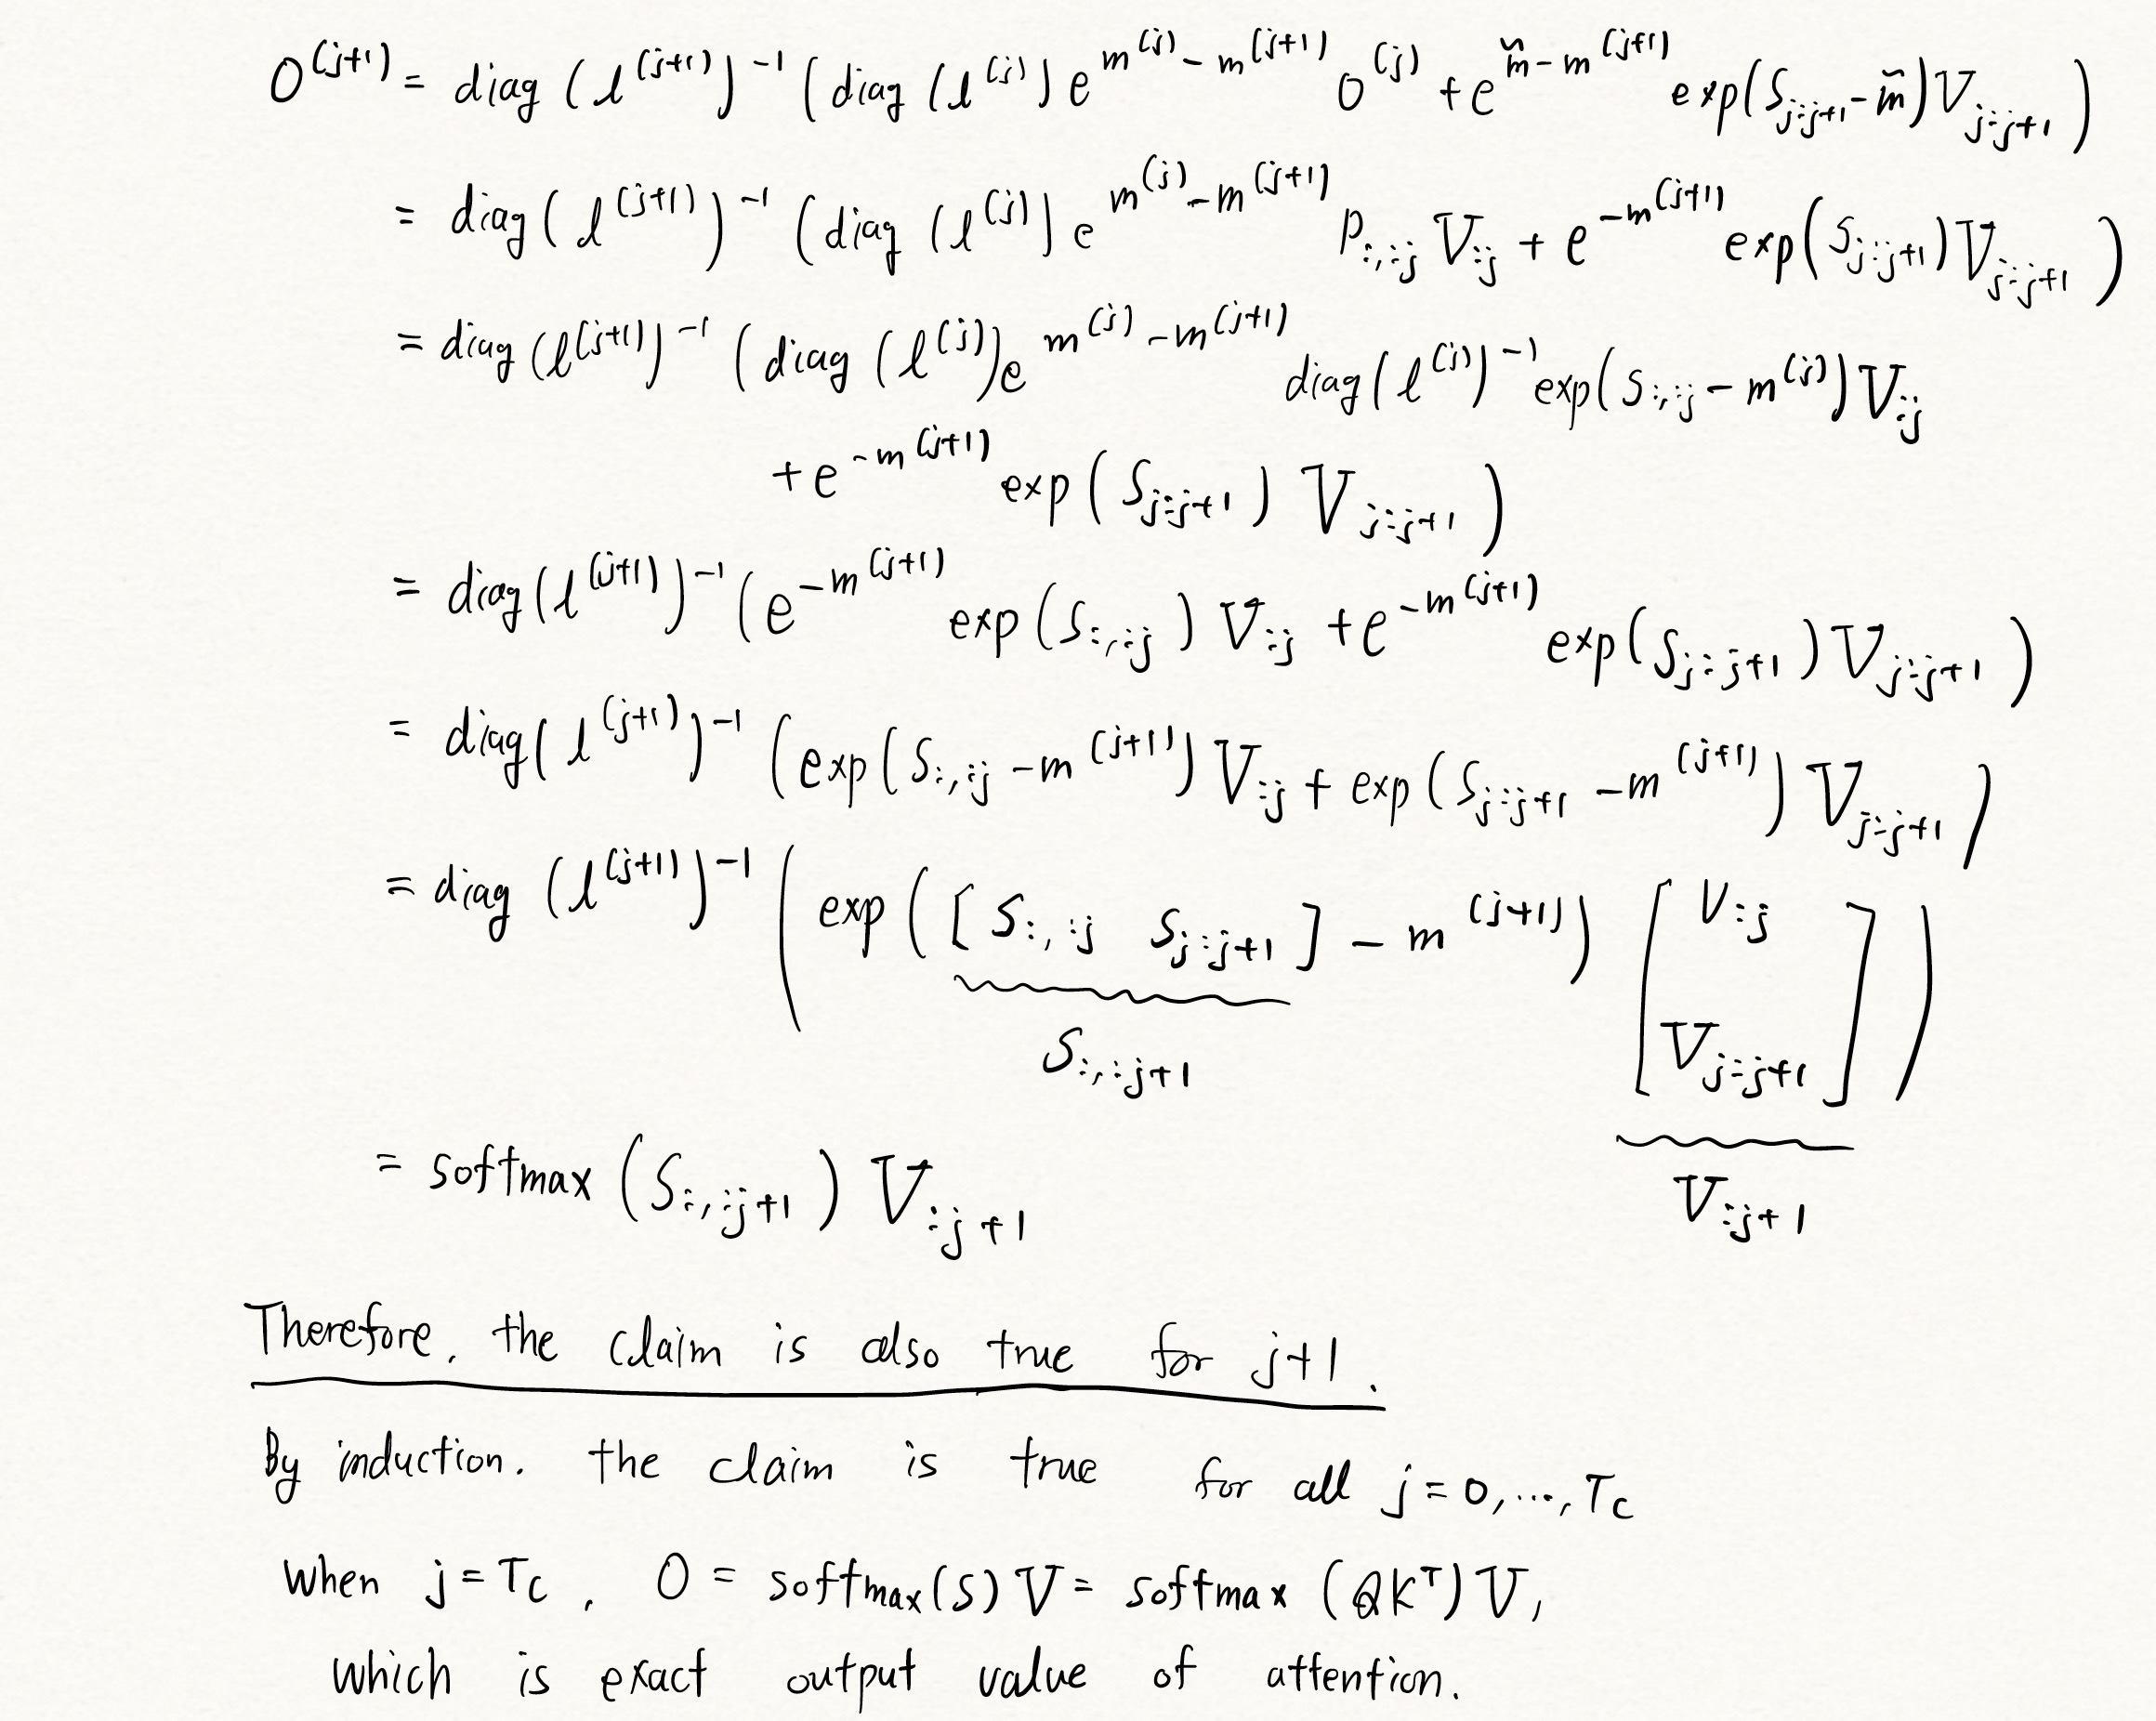 O^{(j+1)} = diag (l^{(j+1)})^{-1} (diag (l^{(j)}) e^{m^{(j)} - m^{(j+1)}} O^{(j)} + e^{m̃ - m^{(j+1)}} exp(S_{j:j+1} - m̃) V_{j:j+1})
= diag (l^{(j+1)})^{-1} (diag (l^{(j)}) e^{m^{(j)} - m^{(j+1)}} P_{:,:j} V_{:j} + e^{-m^{(j+1)}} exp(S_{j:j+1}) V_{j:j+1})
= diag (l^{(j+1)})^{-1} (diag (l^{(j)}) e^{m^{(j)} - m^{(j+1)}} diag (l^{(j)})^{-1} exp(S_{:,:j} - m^{(j)}) V_{:j}
+ e^{-m^{(j+1)}} exp (S_{j:j+1}) V_{j:j+1})
= diag (l^{(j+1)})^{-1} (e^{-m^{(j+1)}} exp (S_{:,:j}) V_{:j} + e^{-m^{(j+1)}} exp (S_{j:j+1}) V_{j:j+1})
= diag (l^{(j+1)})^{-1} (exp (S_{:,:j} - m^{(j+1)}) V_{:j} + exp (S_{j:j+1} - m^{(j+1)}) V_{j:j+1})
= diag (l^{(j+1)})^{-1} (exp ([S_{:,:j} S_{j:j+1}] - m^{(j+1)}) [V_{:j}
V_{j:j+1}])
S_{:,:j+1}
V_{:j+1}
= softmax (S_{:,:j+1}) V_{:j+1}
Therefore, the claim is also true for j+1.
By induction. the claim is true for all j = 0, ..., T_c
When j = T_c , O = softmax(S) V = softmax (QK^T) V,
which is exact output value of attention.